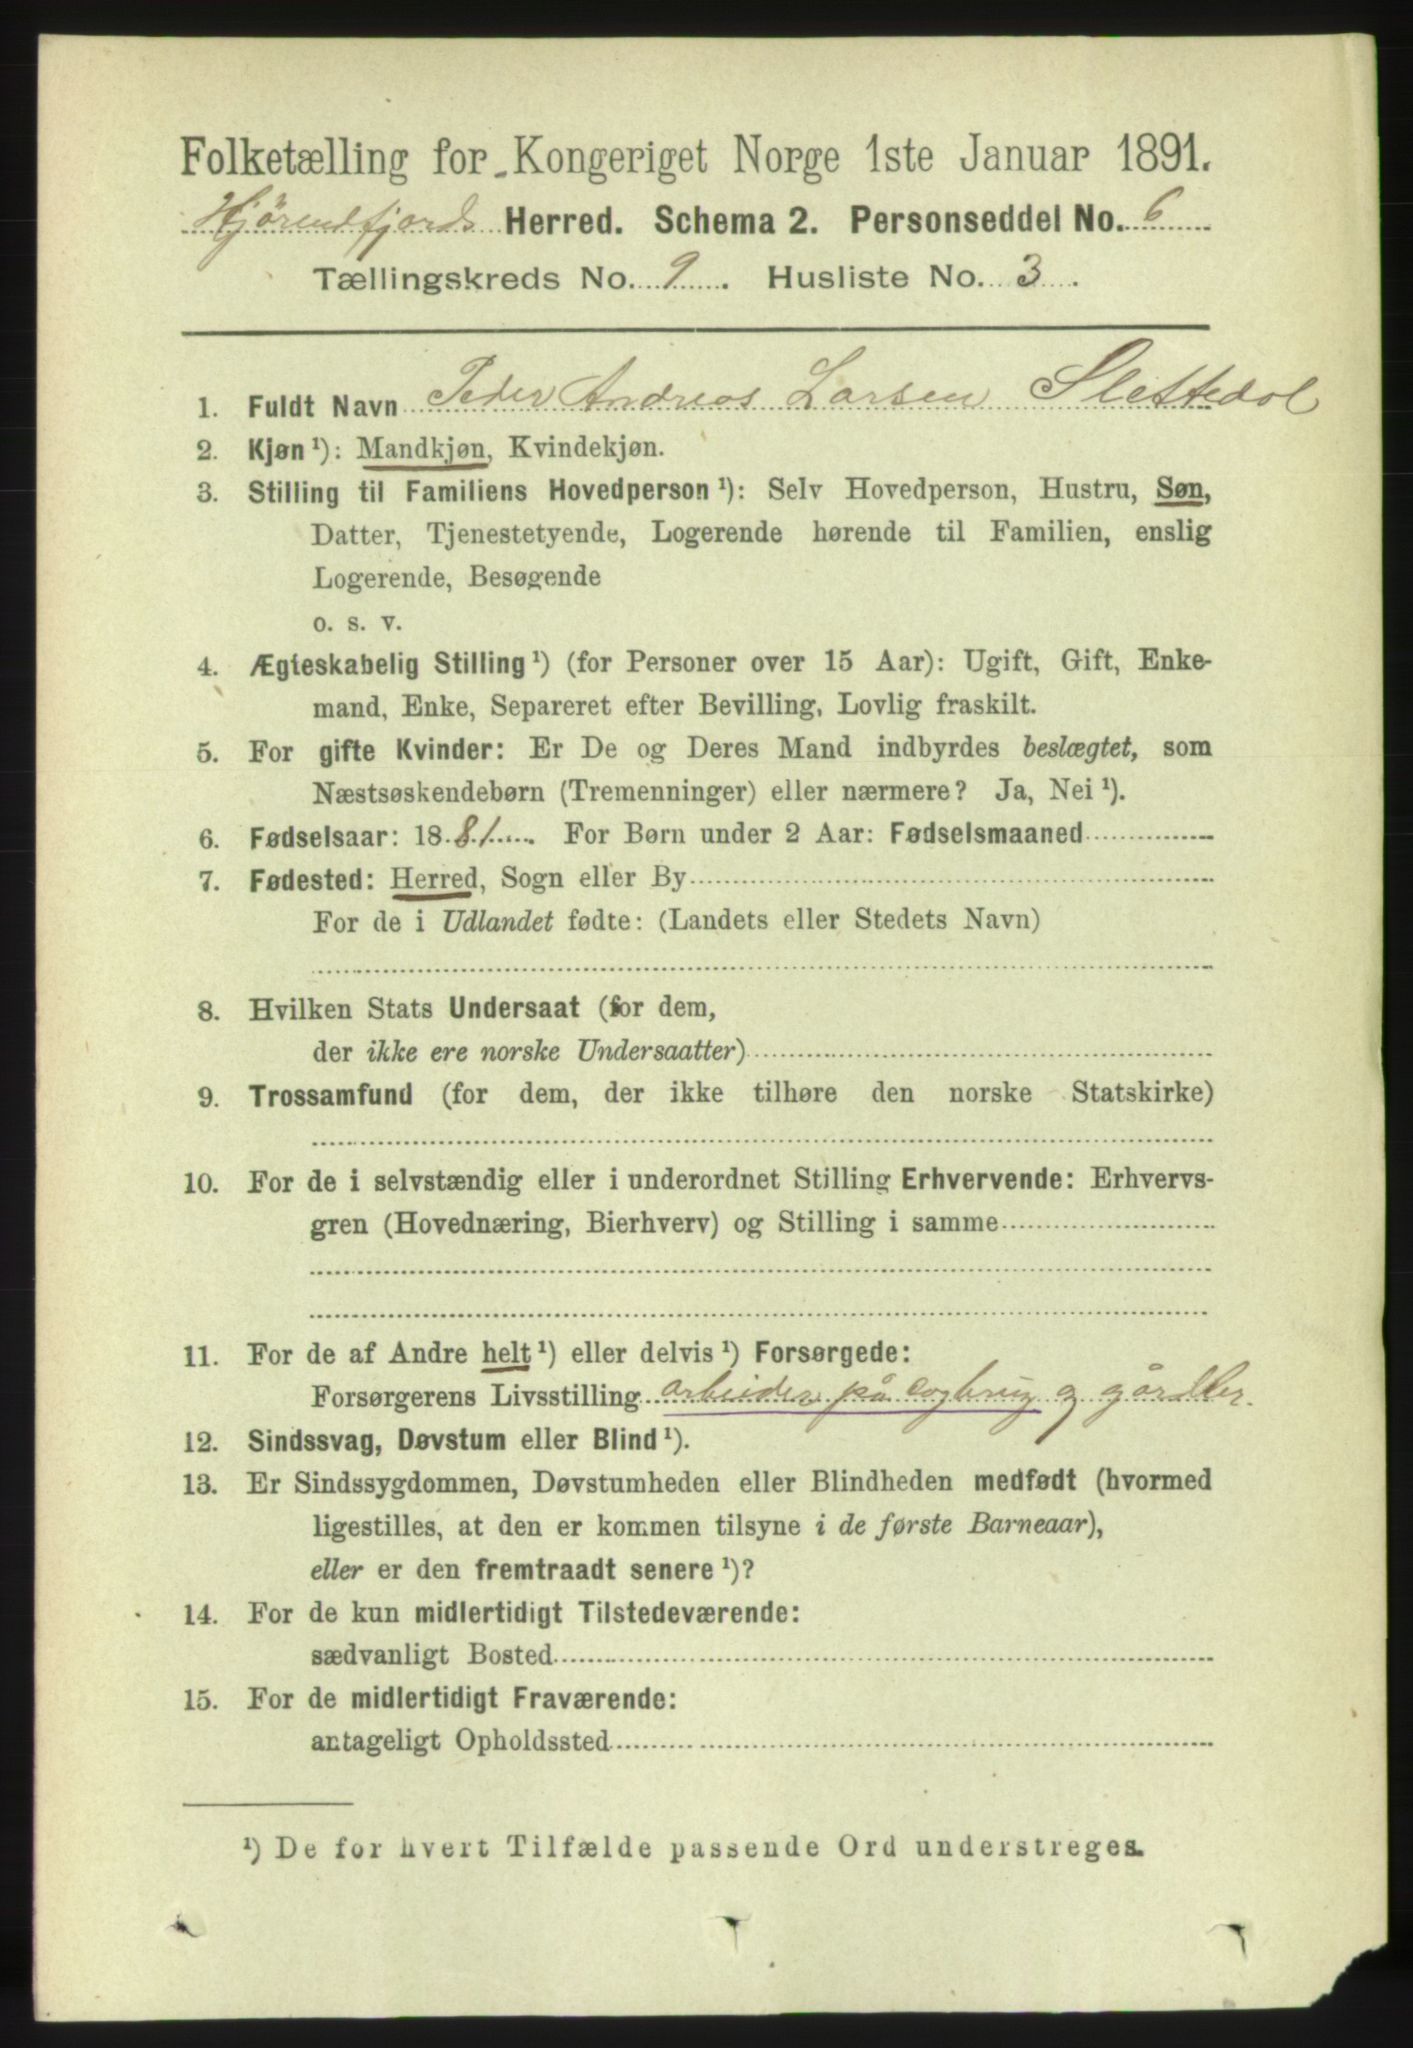 Folketælling for Kongeriget Norge 1ste Januar 1891.
Hjørendfjords Herred. Schema 2. Personseddel No. 6
Tællingskreds No. 9. Husliste No. 3.
1. Fuldt Navn Peder Andreas Larsen Slettedal
2. Kjøn¹): Mandkjøn, Kvindekjøn.
3. Stilling til Familiens Hovedperson¹): Selv Hovedperson, Hustru, Søn,
Datter, Tjenestetyende, Logerende hørende til Familien, enslig
Logerende, Besøgende
o. s. v.
4. Ægteskabelig Stilling¹) (for Personer over 15 Aar): Ugift, Gift, Enke-
mand, Enke, Separeret efter Bevilling, Lovlig fraskilt.
5. For gifte Kvinder: Er De og Deres Mand indbyrdes beslægtet, som
Næstsøskendebørn (Tremenninger) eller nærmere? Ja, Nei¹).
6. Fødselsaar: 1881. For Børn under 2 Aar: Fødselsmaaned
7. Fødested: Herred, Sogn eller By
For de i Udlandet fødte: (Landets eller Stedets Navn)
8. Hvilken Stats Undersaat (for dem,
der ikke ere norske Undersaatter)
9. Trossamfund (for dem, der ikke tilhøre den norske Statskirke)
10. For de i selvstændig eller i underordnet Stilling Erhvervende: Erhvervs-
gren (Hovednæring, Bierhverv) og Stilling i samme
11. For de af Andre helt¹) eller delvis¹) Forsørgede:
Forsørgerens Livsstilling arbeider på
12. Sindssvag, Døvstum eller Blind¹).
13. Er Sindssygdommen, Døvstumheden eller Blindheden medfødt (hvormed
ligestilles, at den er kommen tilsyne i de første Barneaar),
eller er den fremtraadt senere¹)?
14. For de kun midlertidigt Tilstedeværende:
sædvanligt Bosted
15. For de midlertidigt Fraværende:
antageligt Opholdssted
¹) De for hvert Tilfælde passende Ord understreges.